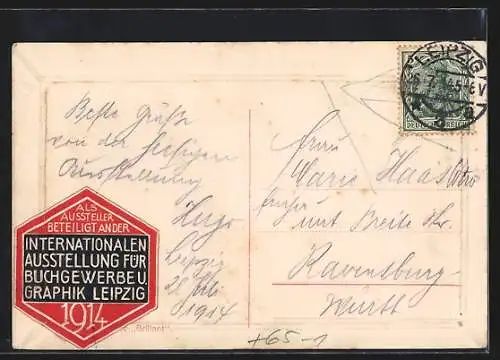 LEIPZIG
DEUTSCHES REICH
Beste Grüße
von der hiesigen
Ausstellung
Hugo
Leipzig
2 Juli
1914
Frau
Marie Haas
unt. Breite Str.
Ravensburg
Württ
ALS
AUSSTELLER
BETEILIGT AN DER
INTERNATIONALEN
AUSSTELLUNG FÜR
BUCHGEWERBE U.
GRAPHIK LEIPZIG
1914
„Brillant"
+65-1